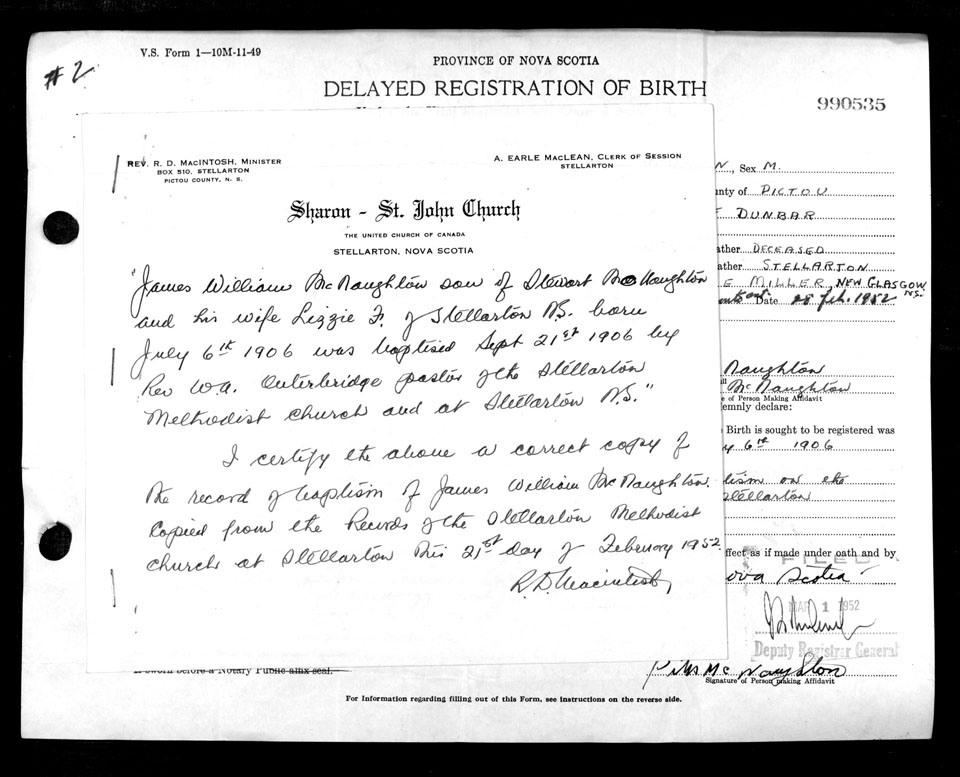 V.S. Form 1—10M-11-49
# 2
PROVINCE OF NOVA SCOTIA
DELAYED REGISTRATION OF BIRTH
990535
REV. R. D. MACINTOSH, MINISTER
BOX 510, STELLARTON
PICTOU COUNTY, N. S.
A. EARLE MACLEAN, CLERK OF SESSION
STELLARTON
Sharon - St. John Church
THE UNITED CHURCH OF CANADA
STELLARTON, NOVA SCOTIA
"James William McNaughton son of Stewart McNaughton
and his wife Lizzie F. of Stellarton N.S. born
July 6th 1906 was baptised Sept 21st 1906 by
Rev W.A. Outerbridge pastor of the Stellarton
Methodist Church and at Stellarton N.S."
I certify the above a correct copy of
the record of baptism of James William McNaughton.
Copied from the Records of the Stellarton Methodist
Church at Stellarton this 21st day of February 1952
R. D. Macintosh
N, Sex M.
nty of PICTOU
DUNBAR
ather DECEASED
ather STELLARTON
E MILLER, NEW GLASGOW N.S.
Date 28 Feb. 1952
Naughton
McNaughton
e of Person Making Affidavit
emnly declare:
Birth is sought to be registered was
y 6th 1906
tism on the
Stellarton
ffect as if made under oath and by
FILED
ova Scotia
MAR 1 1952
Deputy Registrar General
McNaughton
Signature of Person making Affidavit
sworn before a Notary Public affix seal.
For Information regarding filling out of this Form, see instructions on the reverse side.